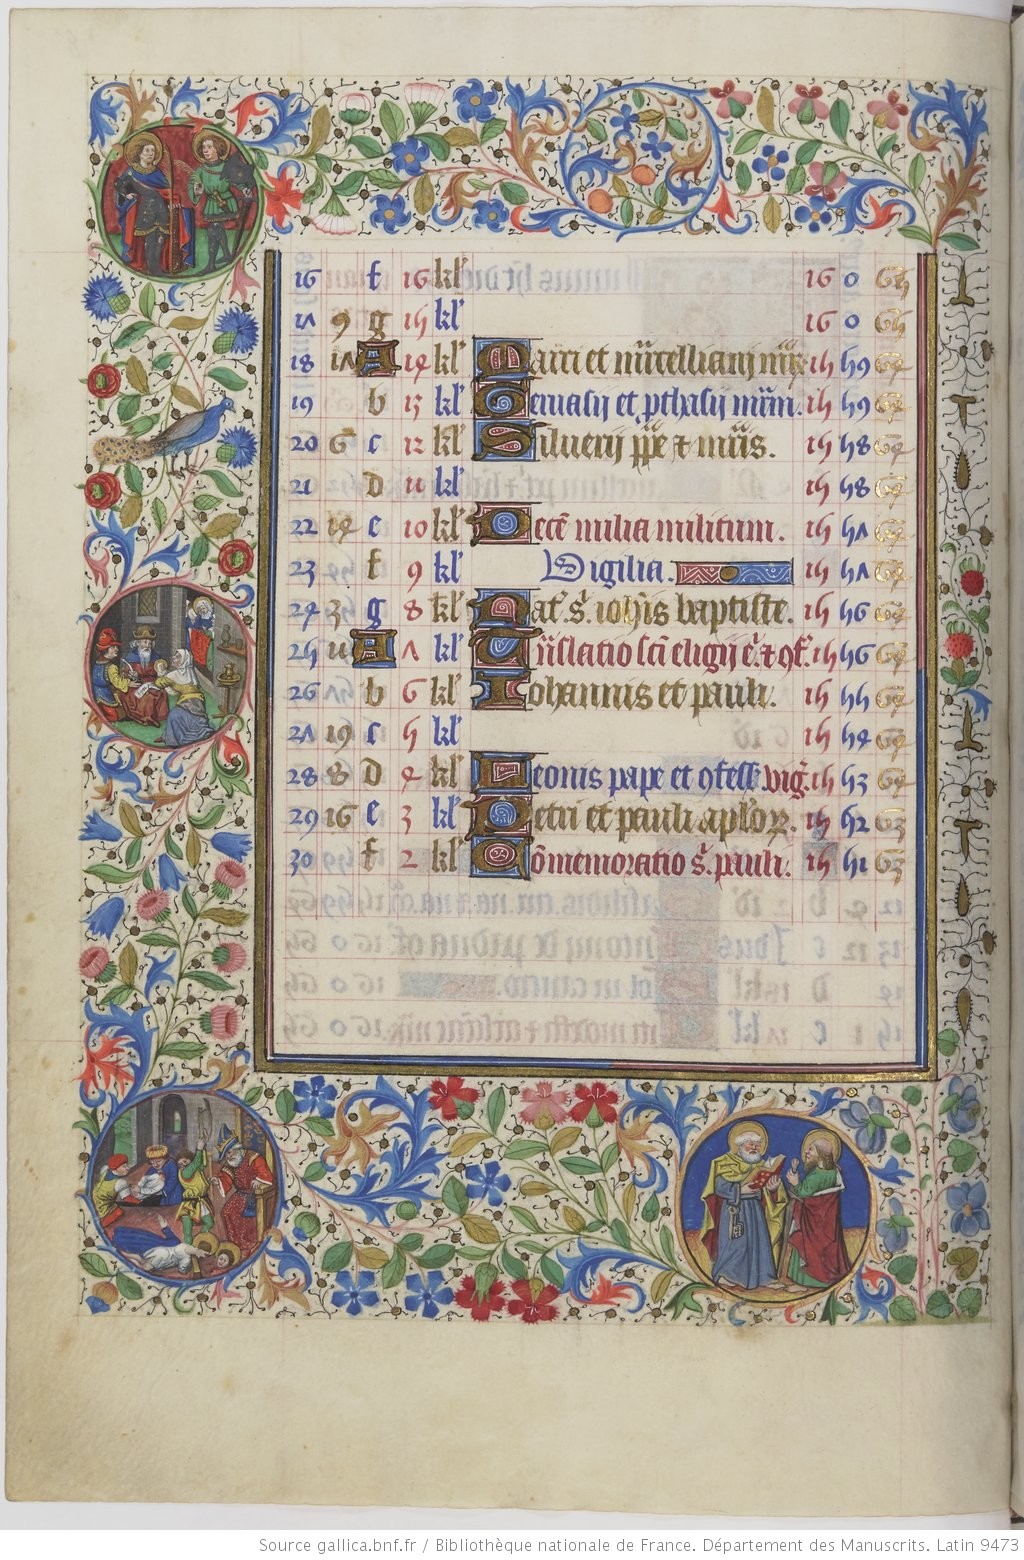 16 f 16 kl' 16 0 65
17 9 g 15 kl' 16 0 65
18 17 A 14 kl' Marci et m̅rcelliani mr̅ 15 59 64
19 b 13 kl' Geruasij et p̱thasij mr̅m. 15 59 64
20 6 c 12 kl' Siluerij pp̅e ⁊ mr̅is. 15 58 64
21 D 11 kl' 15 58 64
22 14 e 10 kl' Decē milia militum. 15 57 64
23 f 9 kl' Vigilia. 15 57 64
24 3 g 8 kl' Nat̓. s̓. ioh̅is baptiste. 15 56 64
25 11 A 7 kl' Tr̅slatio sc̅i eligij e̓. ⁊ ꝯf̓. 15 56 64
26 b 6 kl' Iohannis et pauli. 15 55 64
27 19 c 5 kl' 15 54 64
28 8 D 4 kl' Leonis pape et ꝯfess̓. vig̓. 15 53 64
29 16 e 3 kl' Petri et pauli apl'oꝝ. 15 52 63
30 f 2 kl' Cōmemoratio s̓. pauli. 15 51 63
Source gallica.bnf.fr / Bibliothèque nationale de France. Département des Manuscrits. Latin 9473